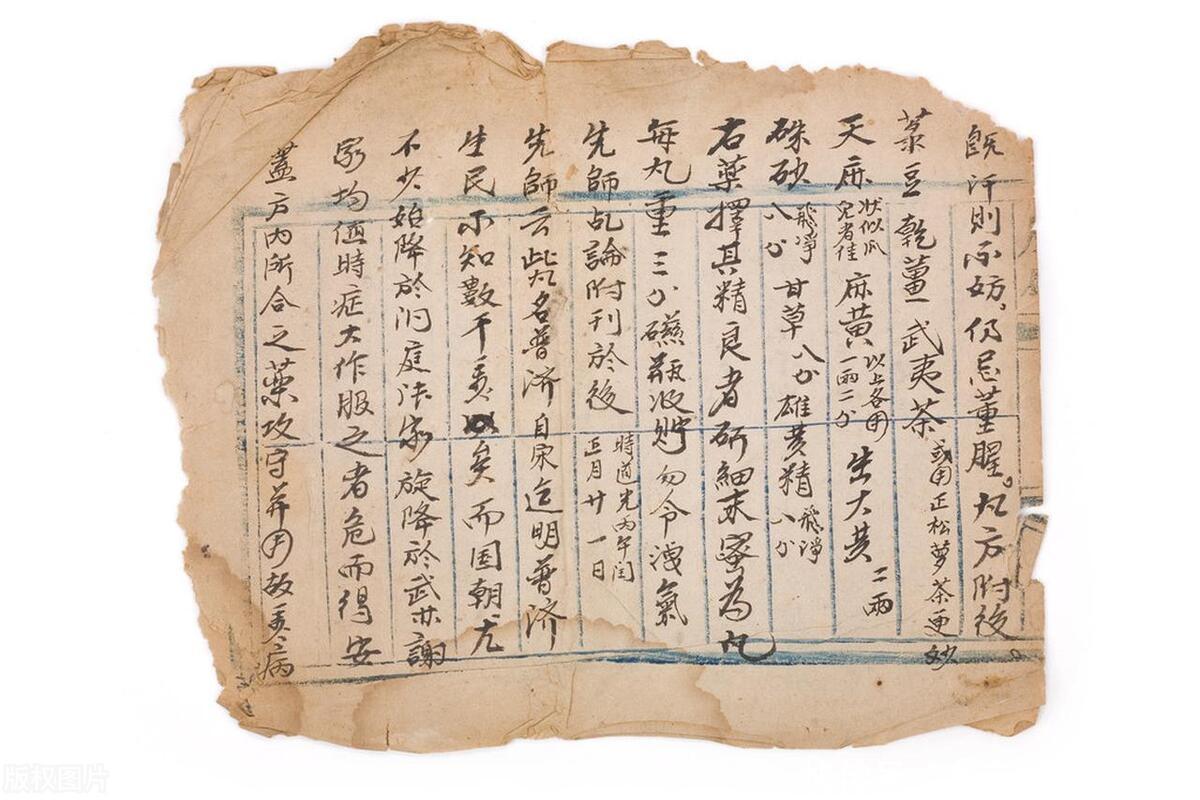 既汗則不妨仍忌葷腥。丸方附後
菉豆 乾薑 武夷茶 或用正松萝茶更妙
天麻 狀似瓜完者佳 麻黃 以上各用一両二分 生大黄 二両
硃砂 飛淨八分 甘草八分 雄黄精 飛淨八分
右薬擇其精良者研細末蜜為丸
每丸重三分礠瓶收貯勿令洩氣
先師乩論附刊於後 時道光丙午閏正月廿一日
先師云此丸名普济自宋迄明普济
生民不知數千矣而国朝尤
不少始降於洞庭法家旋降於武林謝
家均值時症大作服之者危而得安
蓋方内所合之薬攻守并用故其病
版权图片